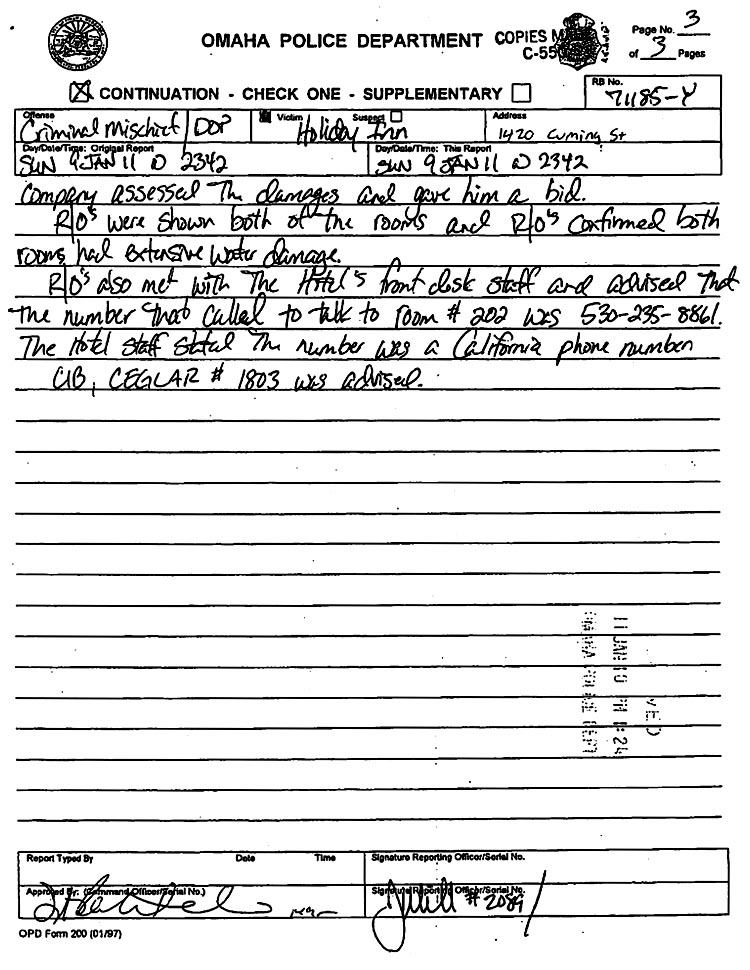 OMAHA POLICE DEPARTMENT
COPIES
C-55
Page No. 3
of 3 Pages
☒ CONTINUATION - CHECK ONE - SUPPLEMENTARY ☐
RB No.
71185-Y
Offense
Criminal Mischief / DOP
Victim Suspect
Holiday Inn
Address
1420 Cuming St
Day/Date/Time: Original Report
SUN 9 JAN 11 @ 2342
Day/Date/Time: This Report
SUN 9 JAN 11 @ 2342
Company assessed The damages and gave him a bid.
R/O's were shown both of the rooms and R/O's Confirmed both
rooms had extensive water damage.
R/O's also met with The Hotel's front desk staff and advised that
the number that called to talk to room # 202 was 530-235-8861.
The Hotel staff stated The number was a California phone number
CIB, CEGLAR # 1803 was advised.
11 JAN 10 PM
OMAHA POLICE DEPT
Report Typed By Date Time
Signature Reporting Officer/Serial No.
Approved By: (Command Officer/Serial No.)
Signature Reporting Officer/Serial No.
# 2089
OPD Form 200 (01/97)